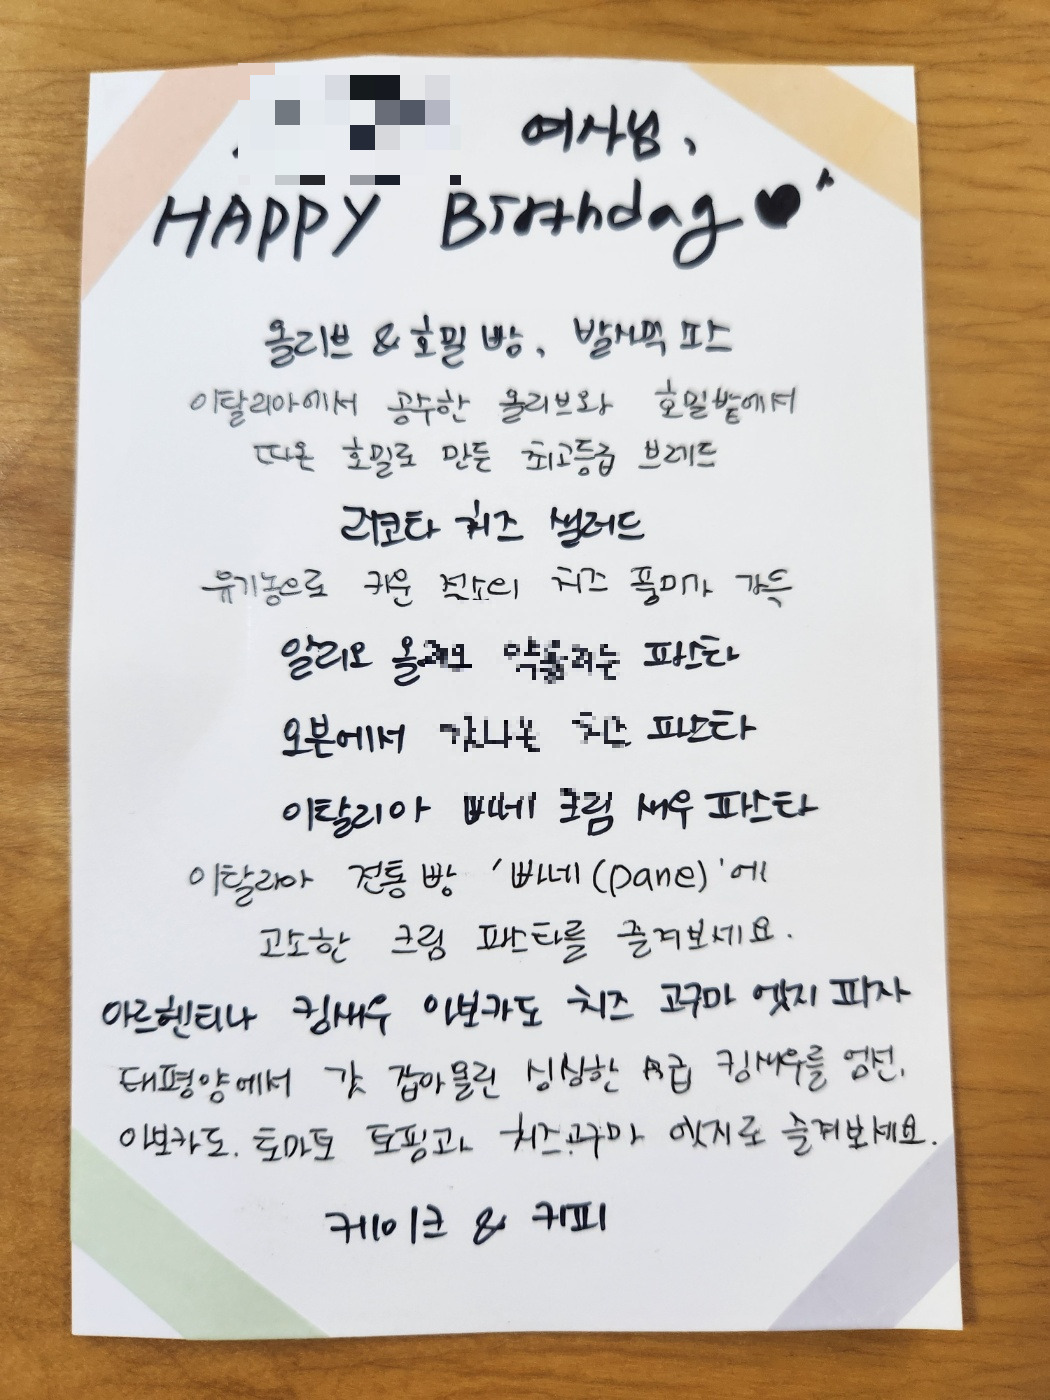 여사님,
HAPPY Birthday♥
올리브 & 호밀 빵, 발사믹 파스
이탈리아에서 공수한 올리브와 호밀밭에서
따온 호밀로 만든 최고등급 브레드
리코타 치즈 샐러드
유기농으로 키운 젖소의 치즈 풍미가 가득
알리오 올리오 파스타
오븐에서 갓나온 치즈 파스타
이탈리아 빠네 크림 새우 파스타
이탈리아 전통 빵 '빠네(pane)'에
고소한 크림 파스타를 즐겨보세요.
아르헨티나 킹새우 아보카도 치즈 고구마 엣지 피자
태평양에서 갓 잡아올린 싱싱한 A급 킹새우를 엄선,
아보카도, 토마토 토핑과 치즈고구마 엣지로 즐겨보세요.
케이크 & 커피